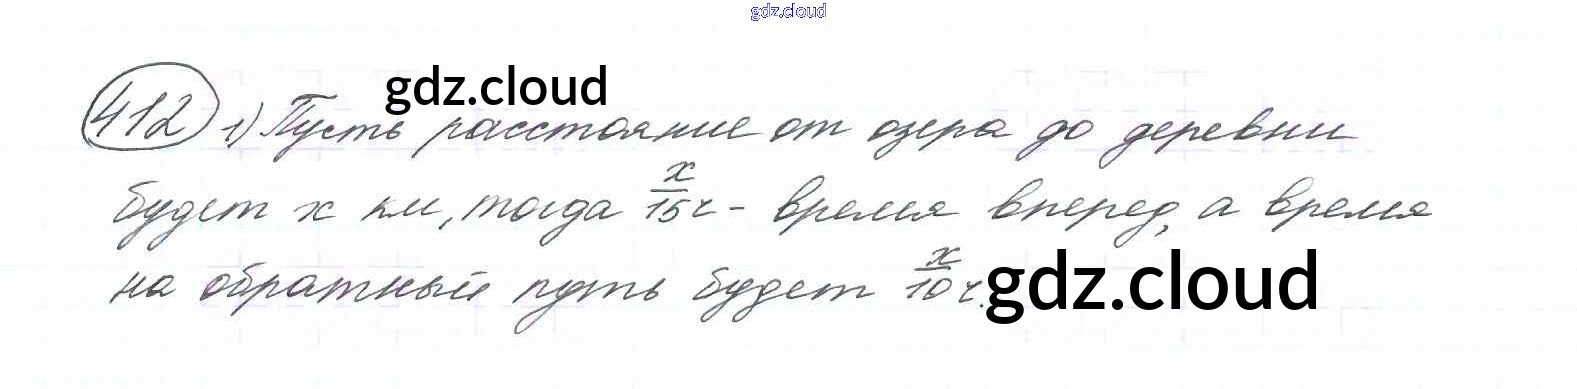 gdz.cloud
gdz.cloud
412 1) Пусть расстояние от озера до деревни
будет x км, тогда x/15 ч - время вперед, а время
на обратный путь будет x/10 ч.
gdz.cloud